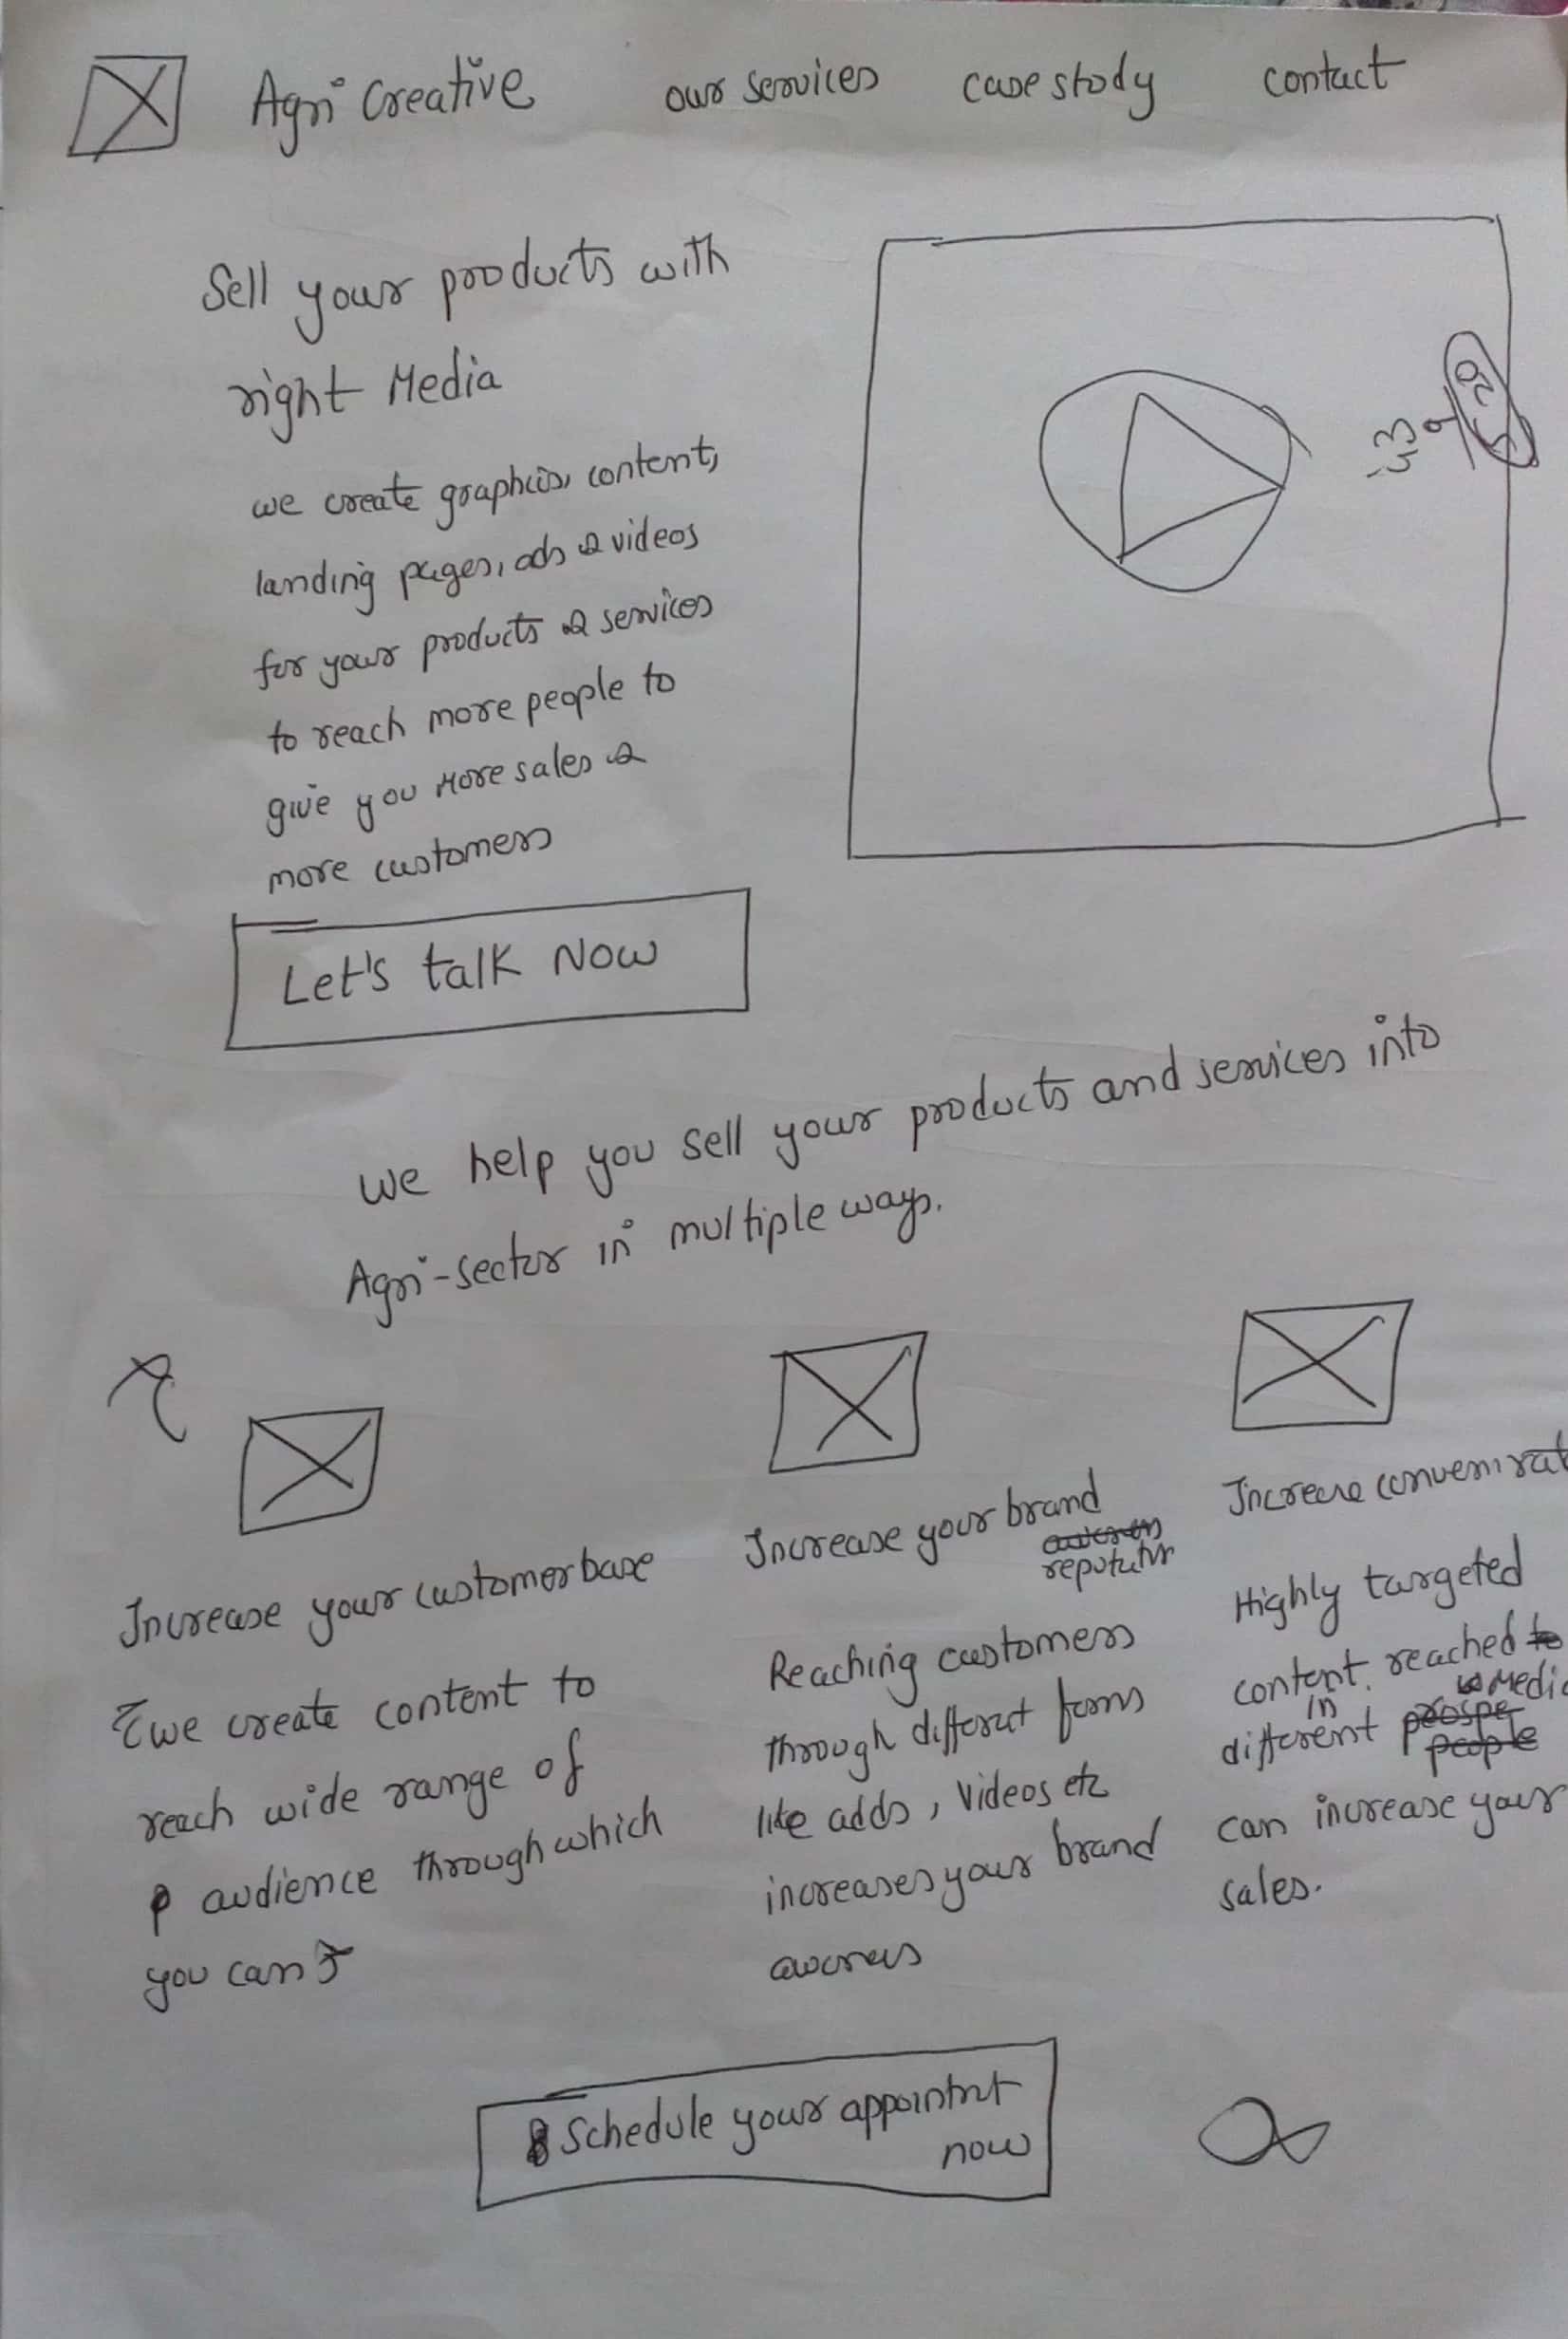 Agri Creative our services case study contact
Sell your products with
right Media
we create graphics, content,
landing pages, ads & videos
for your products & services
to reach more people to
give you More sales &
more customers
Let's talk Now
we help you sell your products and services into
Agri-sector in multiple ways.
Increase your customer base
we create content to
reach wide range of
audience through which
you can
Increase your brand
reputatn
Reaching customers
through different forms
like adds, Videos etc
increases your brand
Increase
Highly targeted
content reached
in
different
can increase your
sales.
Schedule your
now